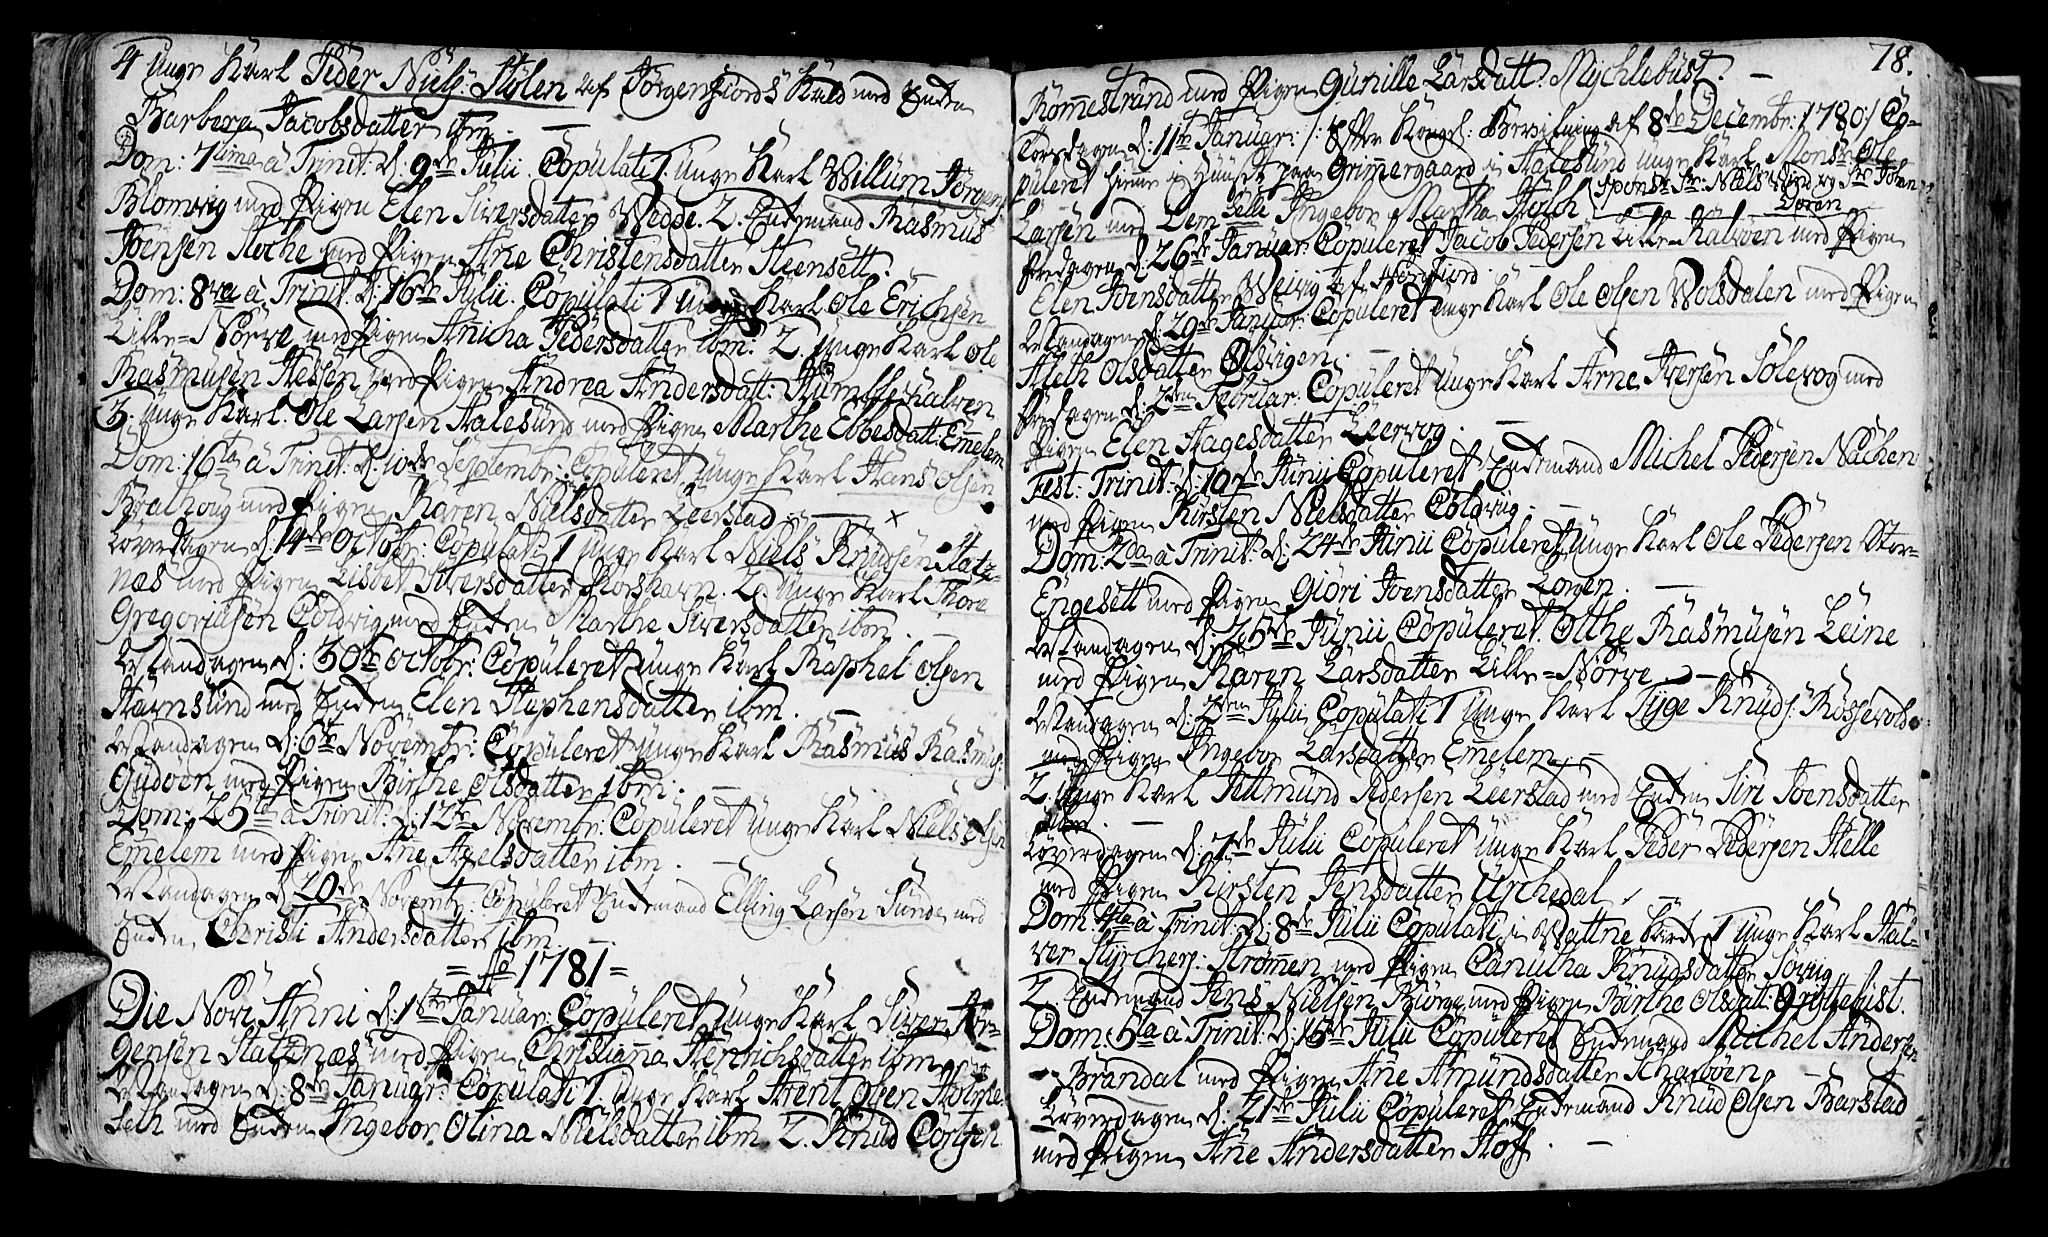 4 Unge Karl Peder Niels: Stölen af Jörgenfiords Kald med Enken
Barbera Jacobsdatter ibm. —
Dom: 7tima à Trinit: d: 9de Julii Copulati 1. Unge Karl Willum Jörgens:
Blomvig med Pigen Elen Siversdatter Vedde. 2. Enkemand Rasmus
Joensen med Pigen Ane Christensdatter Steensett.
Dom: 8va à Trinit. d: 16de Julii. Copulati 1 Unge Karl Ole Erichsen
Lille-Nörve med Pigen Anicha Pedersdatter ibm. 2. Unge Karl Ole
Rasmusen Hessen med Pigen Andrea Andersdatt: Humle Kalven
3. Unge Karl. Ole Larsen Aalesund med Pigen Marthe Ebbesdatt: Emelem
Dom: 16ta à Trinit: d: 10de Septembr: Copuleret Unge Karl Hans Olsen
Bralhoug med Pigen Karen Nielsdatter Leerstad. — ×
Löverdagen d: 14de Octobr: Copulati 1 Unge Karl Niels Knudsen Statz-
næs med Pigen Lisbet Siversdatter Korshavn. 2. Unge Karl Thore
Gregoriusen Coldvig med Enken Marthe Siversdatter ibm. —
Mandagen d: 30te Octobr: Copuleret Unge Karl Raphel Olsen
Havnsund med Enken Elen Stephensdatter ibm. —
Mandagen d: 6te Novembr: Copuleret Unge Karl Rasmus Rasmus:
Gudöen med Pigen Birthe Olsdatter ibm. —
Dom: 25ta à Trinit: d: 12te Novembr: Copuleret Unge Karl Niels Olsen
Emelem med Pigen Ane Axelsdatter ibm. —
Mandagen d: 20de Novembr: Copuleret Enkemand Elling Larsen Sunde med
Enken Christi Andersdatter ibm. —
1781
Die Novi Anni d: 1ste Januar: Copuleret Unge Karl Siver Jör-
gensen Statznæs med Pigen Christianna Henrichsdatter ibm
Mandagen d: 8de Januar: Copulati 1. Unge Karl Arent Olsen Holme-
seth med Enken Ingebor Olina Nielsdatter ibm 2. Knud Corsen
78.
Römmestrand med Pigen Gunille Larsdatt: Mychlebust. —
Torsdagen d: 11te Januar: /: Efter Kongel: Bevilning af 8de Decembr: 1780 :/ Co-
puleret hiemme i Huuset paa Grimmergaard i Aalesund Unge Karl Monsr. Ole
Larsen med Dem selle Ingebor Martha Holch (Spons: Sr. Niels Wind og Sr. Johan
Doren
Fredagen d: 26de Januar: Copuleret Jacob Pedersen Lille Kalvøen med Pigen
Elen Joensdatter Weivig af Nørfiord. —
Mandagen d: 29de Januar: Copuleret Unge Karl Ole Olsen Volsdalen med Pigen
Aleth Olsdatter Olsvigen. —
Fredagen d: 2den Februar: Copuleret Unge Karl Arne Iversen Solevog med
Pigen Elen Hagesdatter Leervog. —
Fest: Trinit: d: 10de Junii Copuleret Enkemand Michel Pedersen Nachen
med Pigen Kirsten Nielsdatter Coldvig. —
Dom: 2da à Trinit: d: 24de Junii Copuleret Unge Karl Ole Pedersen Stor-
Engesett med Pigen Giöri Joensdatter Lorgen. —
Mandagen d: 25de Junii Copuleret Otthe Rasmusen Leine
med Pigen Karen Larsdatter Lille-Nörve —
Mandagen d: 2den Julii Copulati 1 Unge Karl Tyge Knuds: Rössevold
med Pigen Ingebor Larsdatter Emelem. —
2. Unge Karl Jettmund Pedersen Leerstad med Enken Siri Joensdatter
ibm. —
Löverdagen d: 7de Julii Copuleret Unge Karl Peder Pedersen Helle
med Pigen Kirsten Jensdatter Urchedal. —
Dom: 4ta à Trinit: d: 8de Julii Copulati i Vattne Kirke 1 Unge Karl Hal-
ver Styrchers: Strömmen med Pigen Canutha Knudsdatter Sövig
2. Enkemand Jens Nielsen Burge med Pigen Birthe Olsdatt: Gröttebust.
Dom: 5ta à Trinit: d: 15de Julii Copuleret Enkemand Michel Andersen
Brandal med Pigen Ane Amundsdatter Scharböen. —
Löverdagen d: 21de Julii Copuleret Enkemand Knud Olsen Barstad
med Pigen Ane Andersdatter Hoff. —